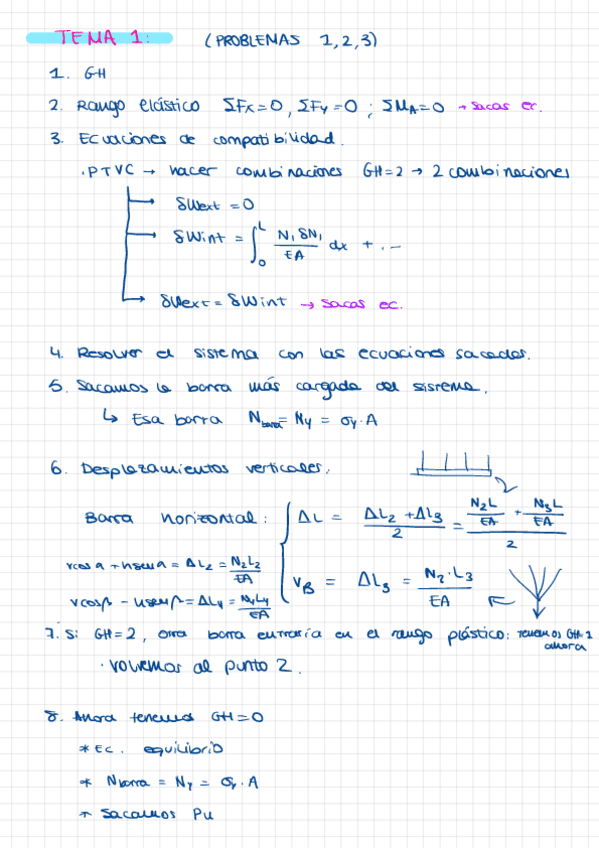 TEMA 1: (PROBLEMAS 1,2,3)
1. GH
2. Rango elástico ΣFx=0, ΣFy=0 ; ΣMA=0 → sacas ec.
3. Ecuaciones de compatibilidad.
· PTVC → hacer combinaciones GH=2 → 2 combinaciones
→ δWext = 0
→ δWint = ∫₀ᴸ N₁ δN₁ / EA dx + ...
→ δWext = δWint → sacas ec.
4. Resolver el sistema con las ecuaciones sacadas.
5. Sacamos la barra más cargada del sistema.
↳ Esa barra Nbarra = Ny = σy·A
6. Desplazamientos verticales.
Barra horizontal: ΔL = (ΔL₂ + ΔL₃) / 2 = (N₂L/EA + N₃L/EA) / 2
vcosα + usenα = ΔL₂ = N₂L₂/EA
vB = ΔL₃ = N₂·L₃ / EA
vcosβ - usenβ = ΔL₄ = N₄L₄/EA
7. Si GH=2, otra barra entraría en el rango plástico: tenemos GH=1 ahora
· volvemos al punto 2.
8. Ahora tenemos GH=0
* EC. equilibrio
* Nbarra = Ny = σy·A
* Sacamos Pu